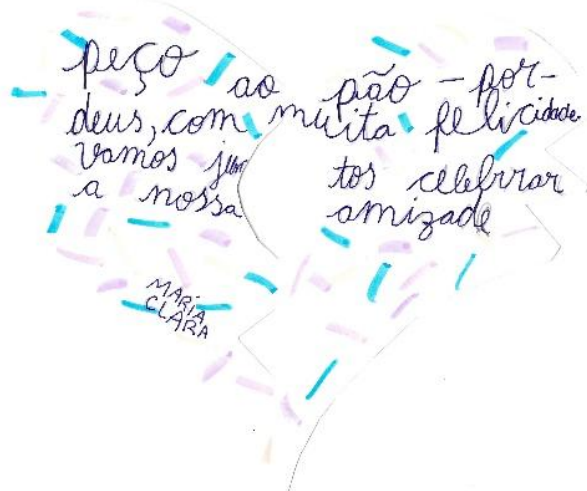 peço ao pão-por-
deus, com muita felicidade
vamos juntos celebrar
a nossa amizade
MARIA
CLARA